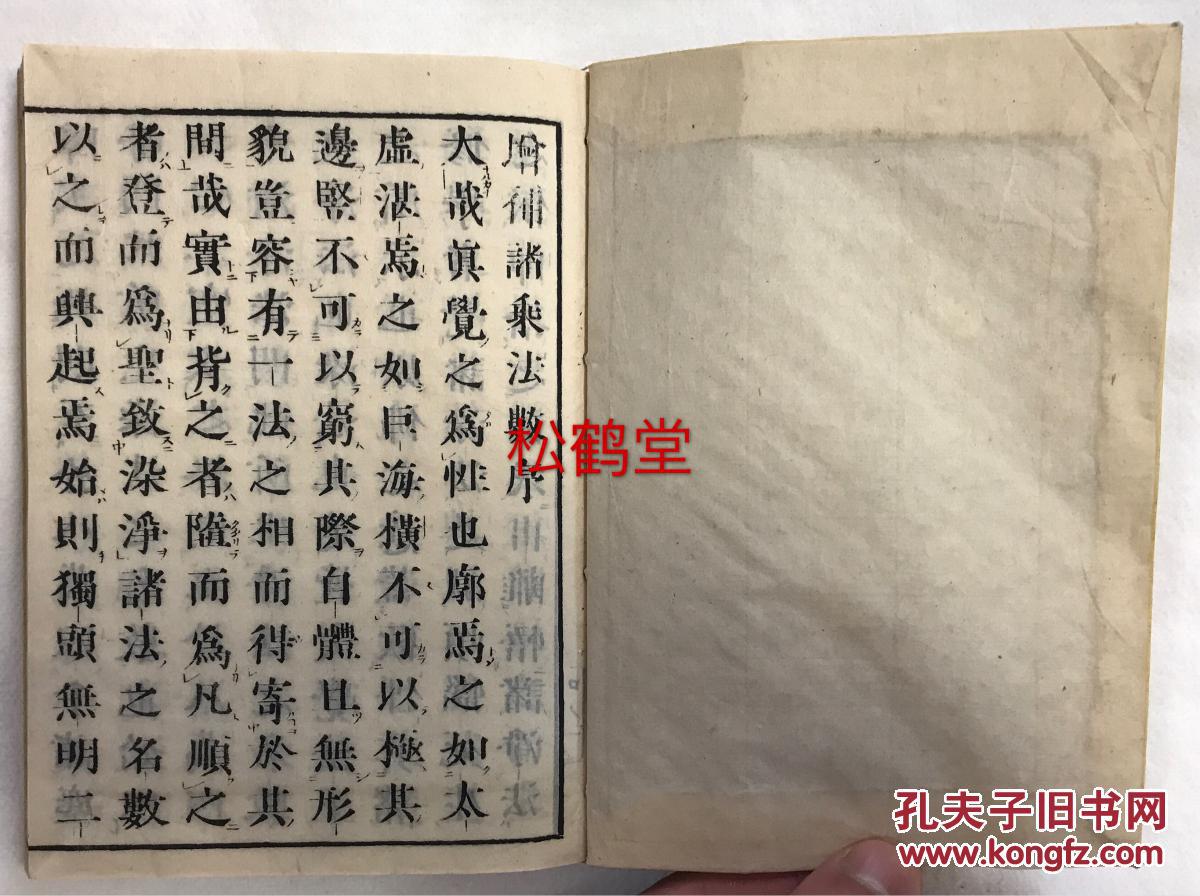 增補諸乘法數序
大哉眞覺之爲性也廓焉之如太
虛湛焉之如巨海橫不可以極其
邊竪不可以窮其際自體且無形
貌豈容有一法之相而得寄於其
間哉實由背之者墮而爲凡順之
者登而爲聖致染淨諸法之名數
以之而興起焉始則獨頭無明二
松鹤堂
孔夫子旧书网
www.kongfz.com